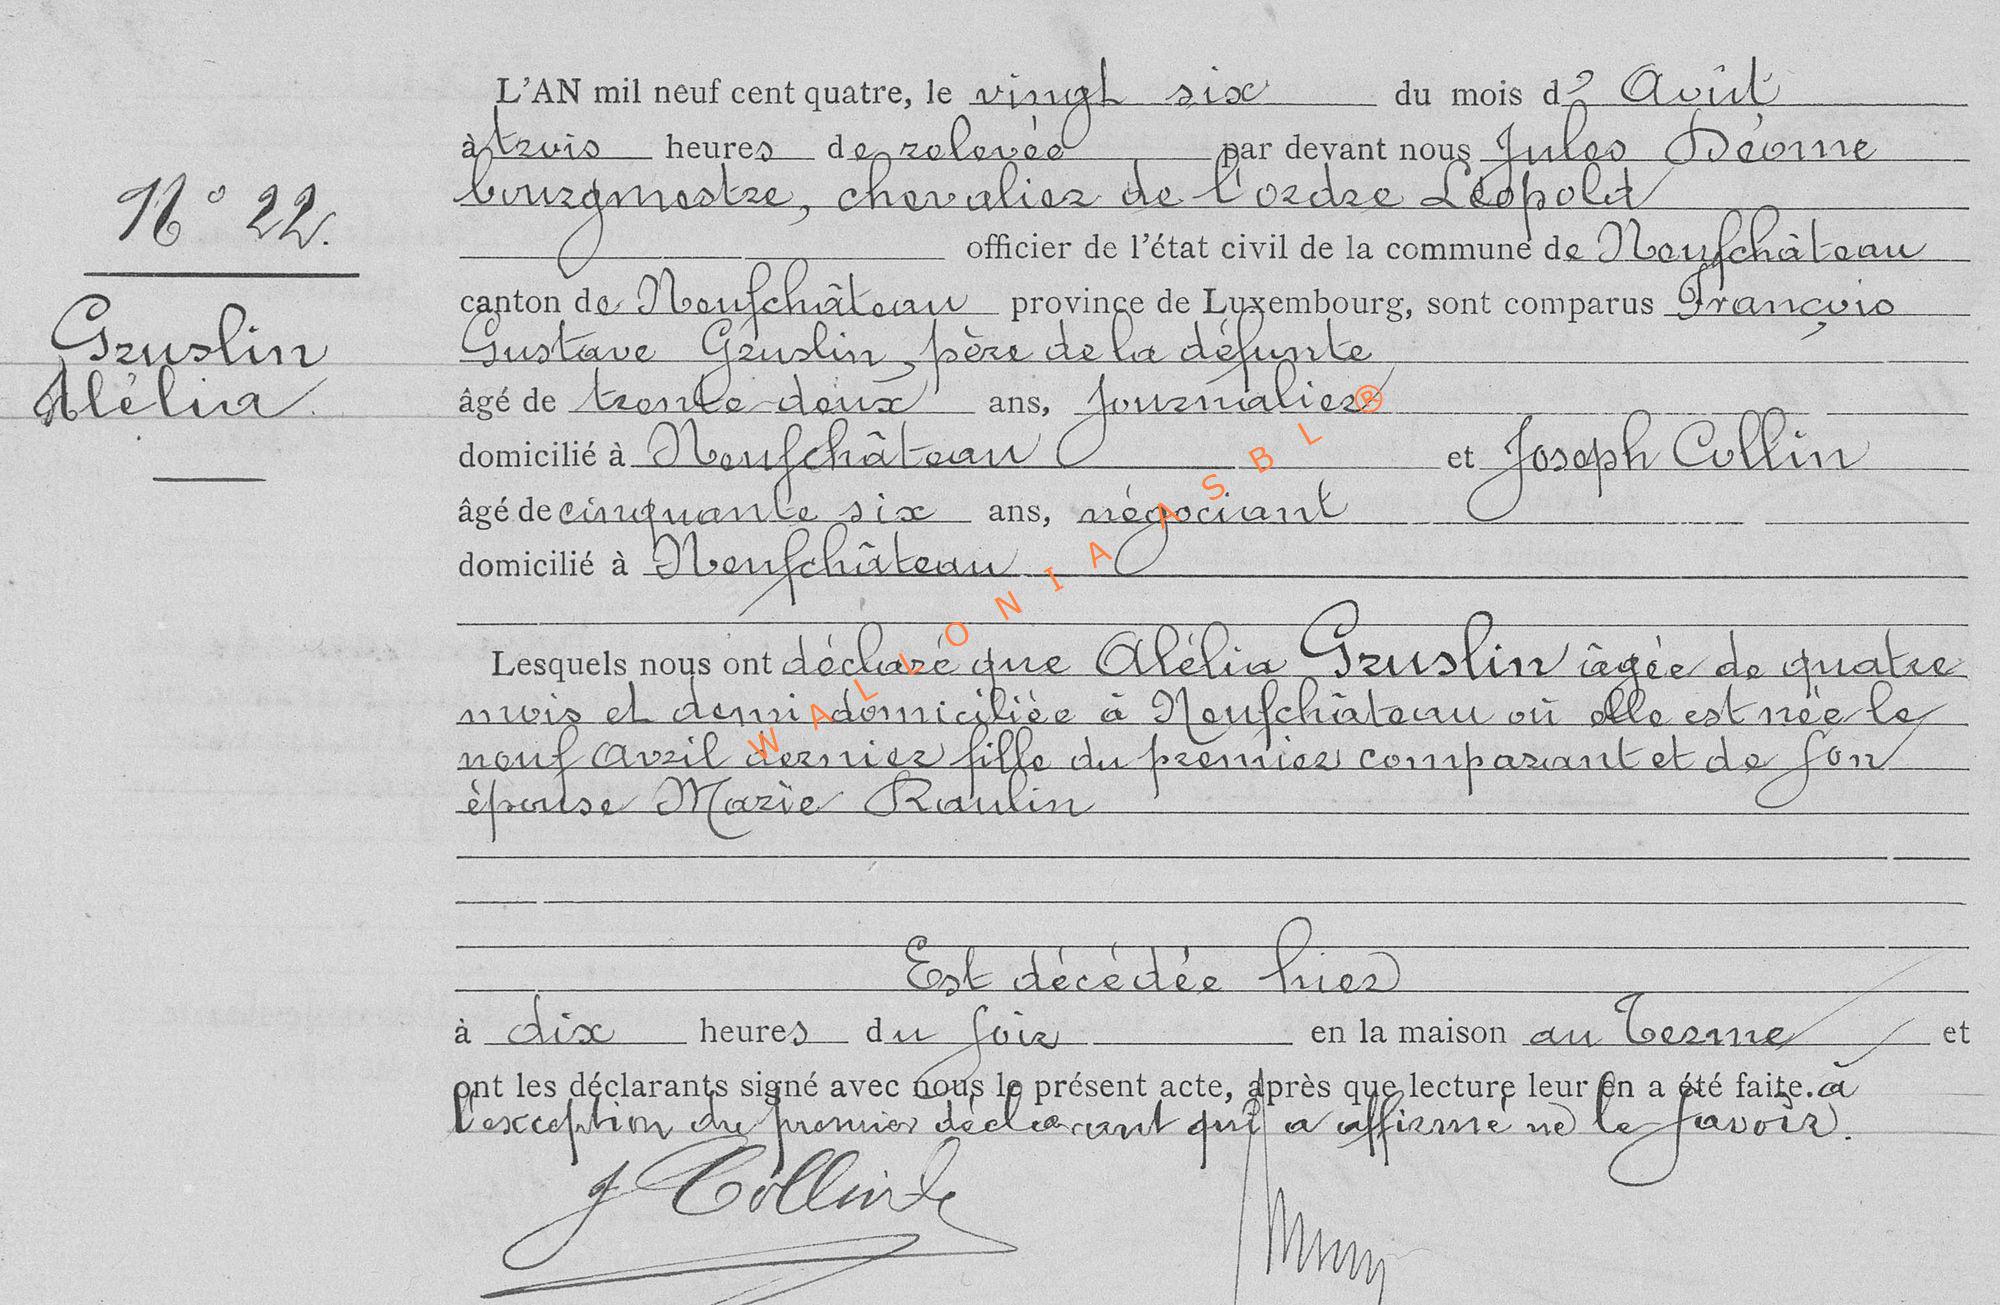 L'AN mil neuf cent quatre, le vingt six du mois d' Août
à trois heures de relevée par devant nous Jules Déome
bourgmestre, chevalier de l'ordre Léopold
officier de l'état civil de la commune de Neufchâteau
canton de Neufchâteau province de Luxembourg, sont comparus François
Gustave Gruslin, père de la défunte
âgé de trente-deux ans, journalier
domicilié à Neufchâteau et Joseph Collin
âgé de cinquante six ans, négociant
domicilié à Neufchâteau
Lesquels nous ont déclaré que Alélia Gruslin âgée de quatre
mois et demi domiciliée à Neufchâteau où elle est née le
neuf avril dernier fille du premier comparant et de son
épouse Marie Raulin
Est décédée hier
à dix heures du soir en la maison au Terme et
ont les déclarants signé avec nous le présent acte, après que lecture leur en a été faite. à
l'exception du premier déclarant qui a affirmé ne le savoir.
N° 22.
Gruslin
Alélia
WALLONIA ASBL ®